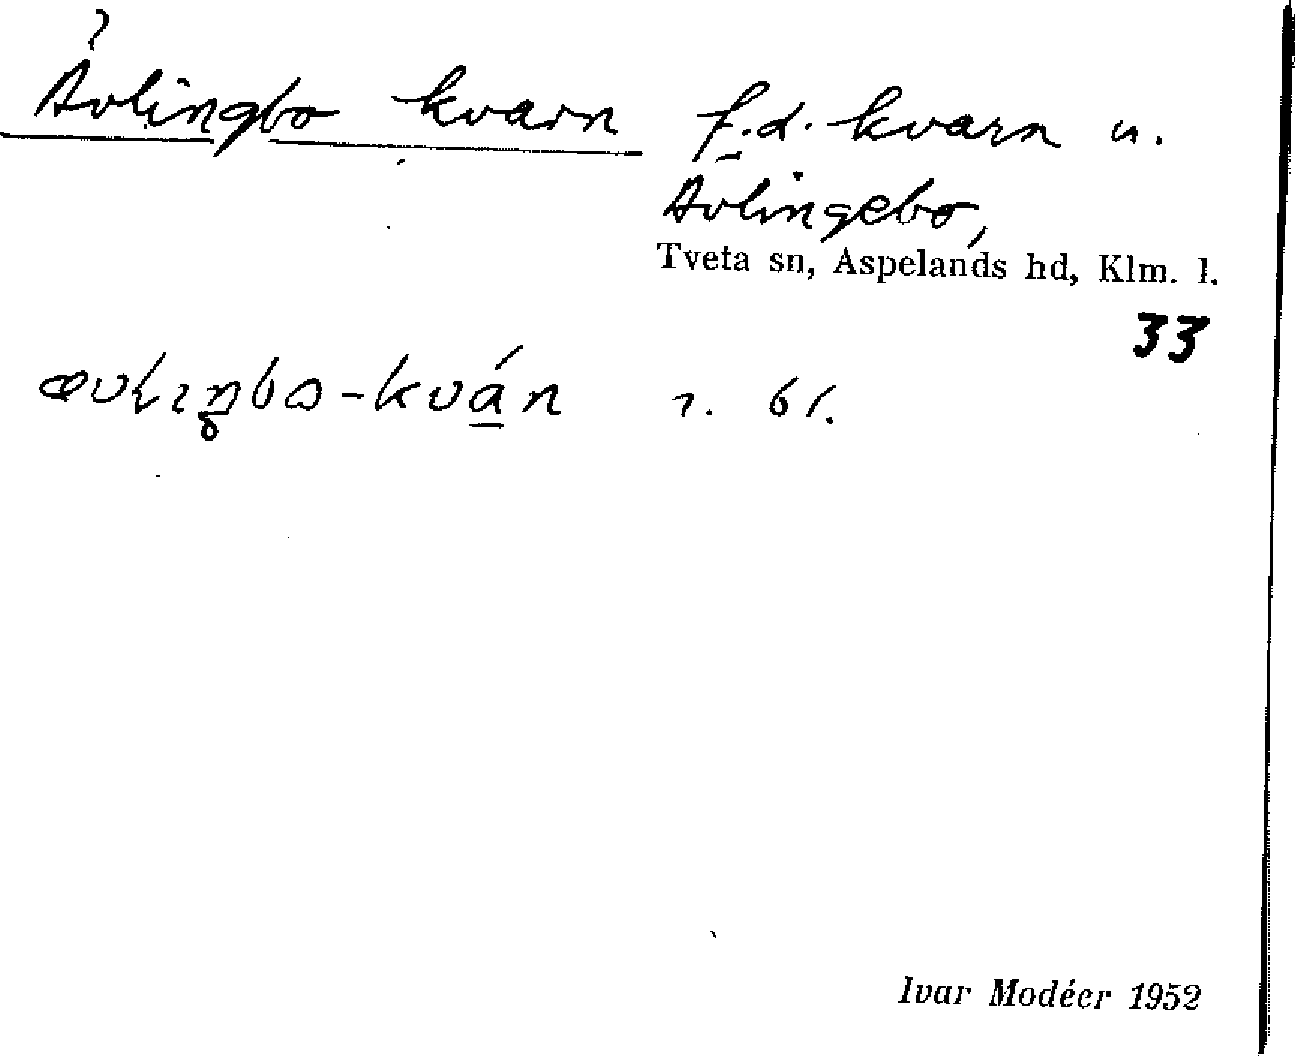 Åvlingbo kvarn f.d. kvarn u.
Åvlingebo,
Tveta sn, Aspelands hd, Klm. l.
33
r. bl.
Ivar Modéer 1952